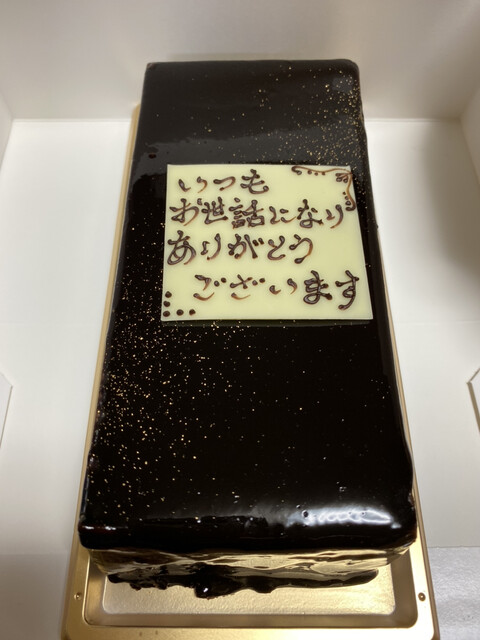 いつも
お世話になり
ありがとう
ございます